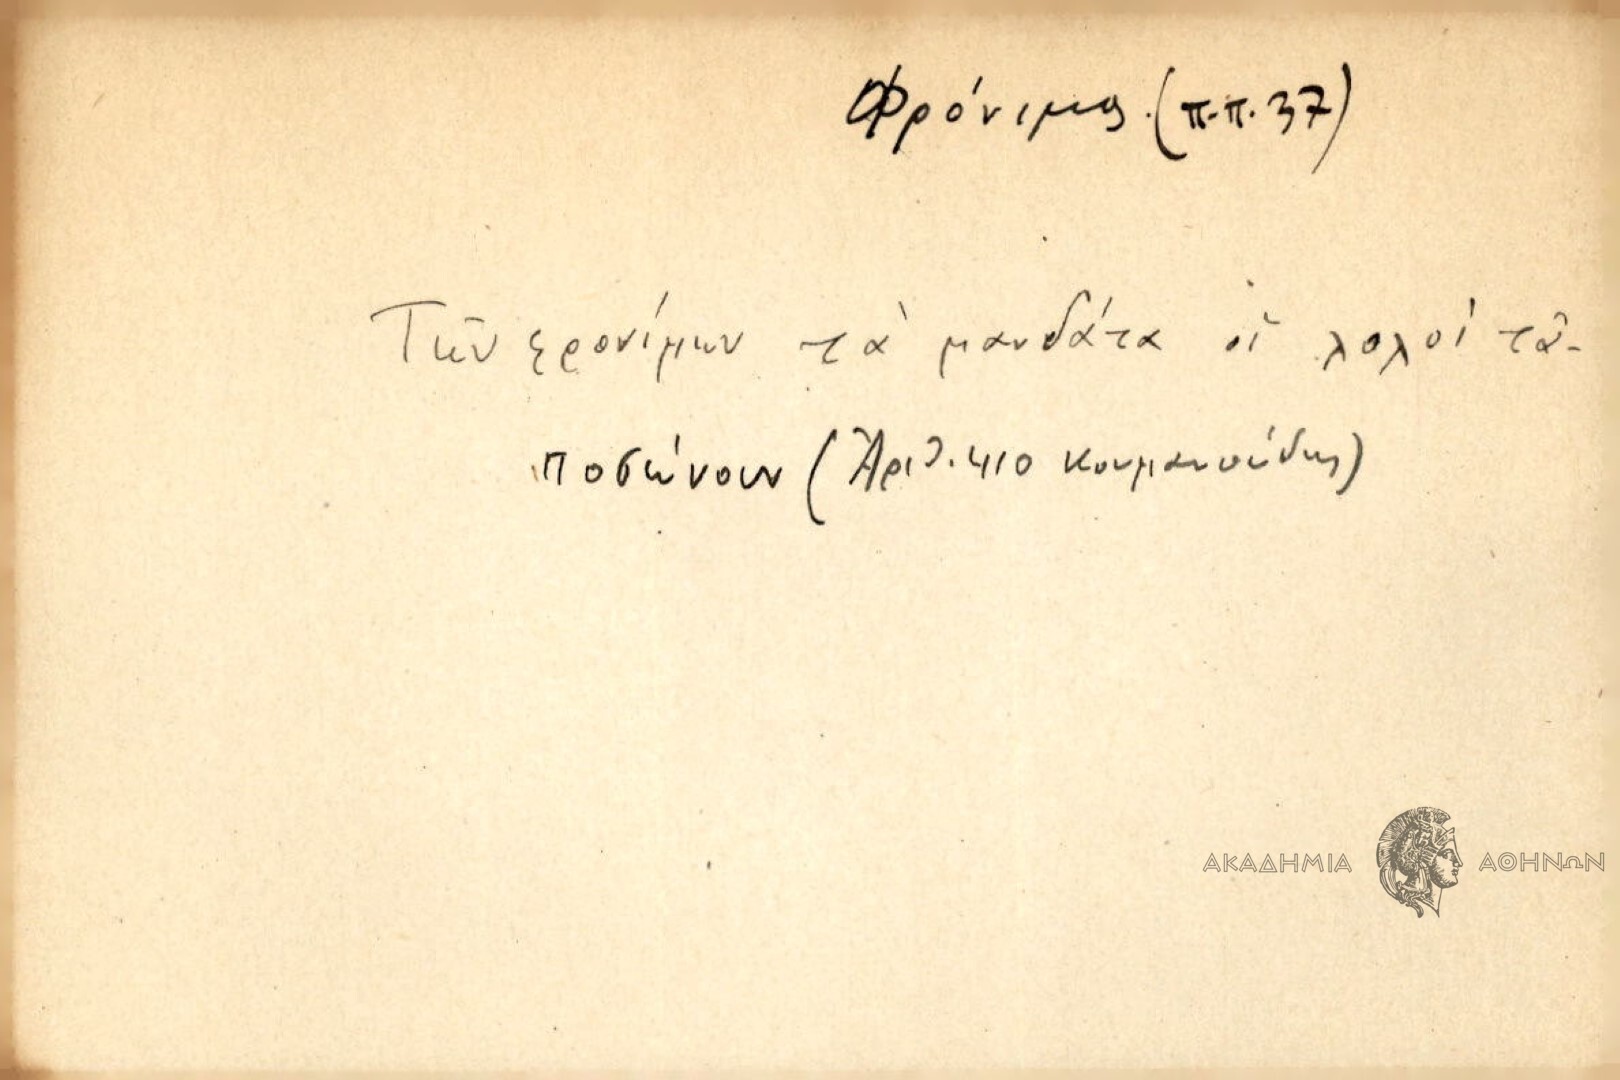 Φρόνιμος (π.π. 37)
Τῶν φρονίμων τὰ μανδάτα οἱ λολοί τἀ-
ποσώνουν (Ἀριθ. 410 Κουμανούδης)
ΑΚΑΔΗΜΙΑ ΑΘΗΝΩΝ